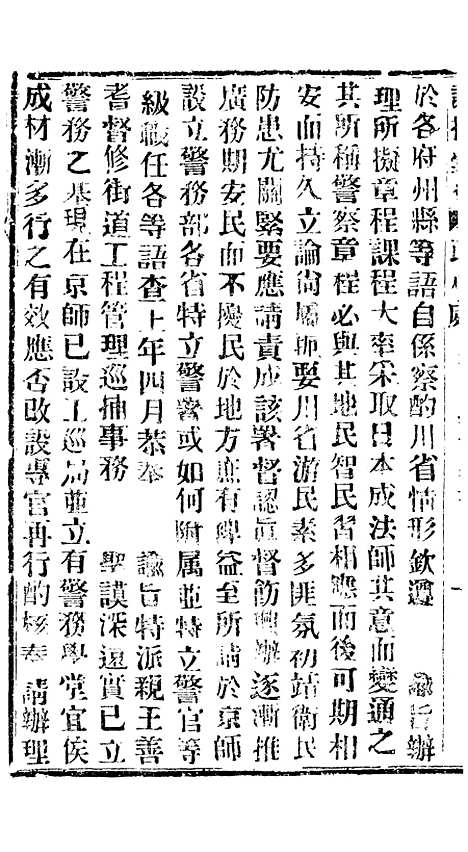 於各府州縣等語自係察酌川省情形欽遵　諭旨辦
理所擬章程課程大率采取日本成法師其意而變通之
其所稱警察章程必與其地民智民習相應而後可期相
安而持久立論尚屬扼要川省游民素多匪氛初靖衛民
防患尤關緊要應請責成該署督認真督飭興辦逐漸推
廣務期安民而不擾民於地方庶有裨益至所請於京師
設立警務部各省特立警署或如何附属並特立警官等
級職任各等語查上年四月恭奉　諭旨特派親王善
耆督修街道工程管理巡捕事務　聖謨深遠實已立
警務之基現在京師已設工巡局並立有警務學堂宜俟
成材漸多行之有效應否改設專官再行酌核奏　請辦理